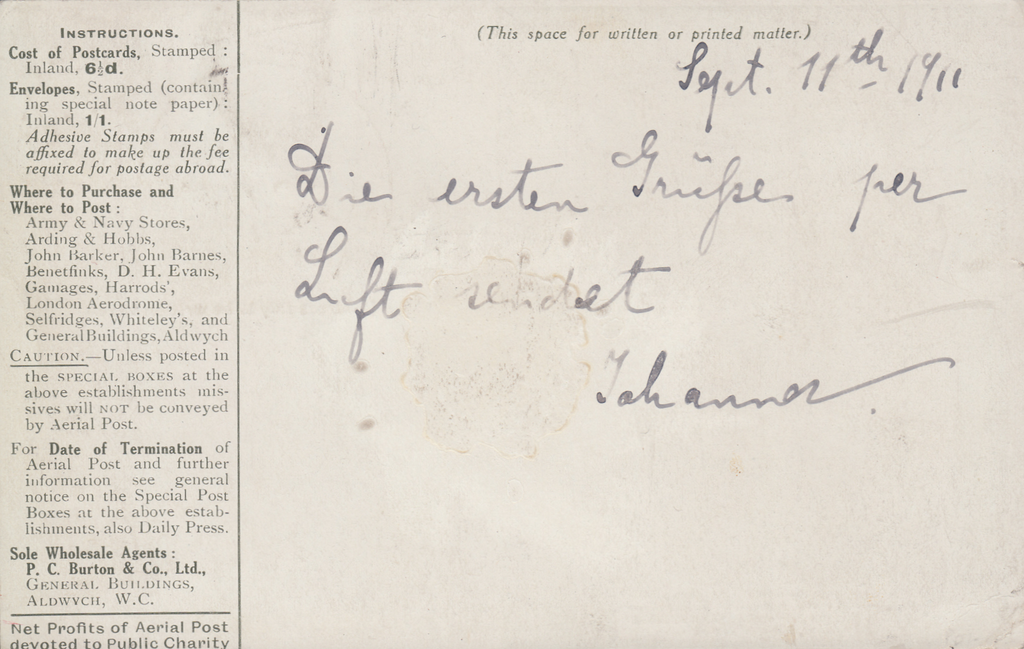 INSTRUCTIONS.
Cost of Postcards, Stamped :
Inland, 6½d.
Envelopes, Stamped (contain-
ing special note paper) :
Inland, 1/1.
Adhesive Stamps must be
affixed to make up the fee
required for postage abroad.
Where to Purchase and
Where to Post :
Army & Navy Stores,
Arding & Hobbs,
John Barker, John Barnes,
Benetfinks, D. H. Evans,
Gamages, Harrods',
London Aerodrome,
Selfridges, Whiteley's, and
General Buildings, Aldwych
CAUTION.—Unless posted in
the SPECIAL BOXES at the
above establishments mis-
sives will NOT be conveyed
by Aerial Post.
For Date of Termination of
Aerial Post and further
information see general
notice on the Special Post
Boxes at the above estab-
lishments, also Daily Press.
Sole Wholesale Agents :
P. C. Burton & Co., Ltd.,
GENERAL BUILDINGS,
ALDWYCH, W.C.
Net Profits of Aerial Post
devoted to Public Charity
(This space for written or printed matter.)
Sept. 11th 1911
Die ersten Grüße per
Luft sendet
Johanna.